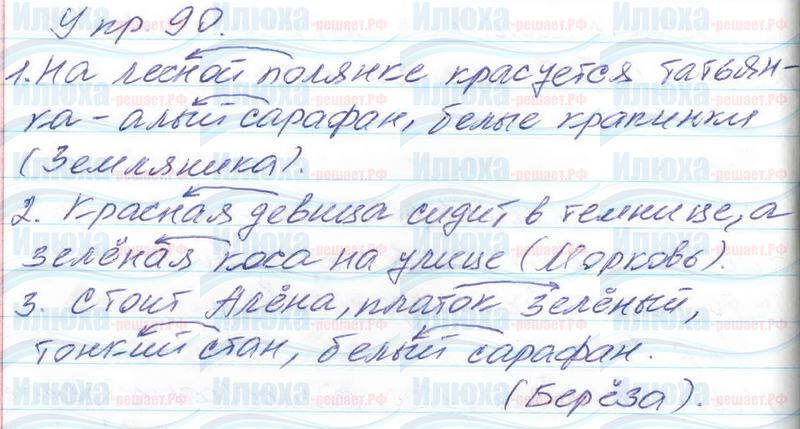 Упр. 90.
1. На лесной полянке красуется татьян-
ка - алый сарафан, белые крапинки
(Земляника).
2. Красная девица сидит в темнице, а
зелёная коса на улице (Морковь).
3. Стоит Алёна, платок зелёный,
тонкий стан, белый сарафан.
(Берёза).